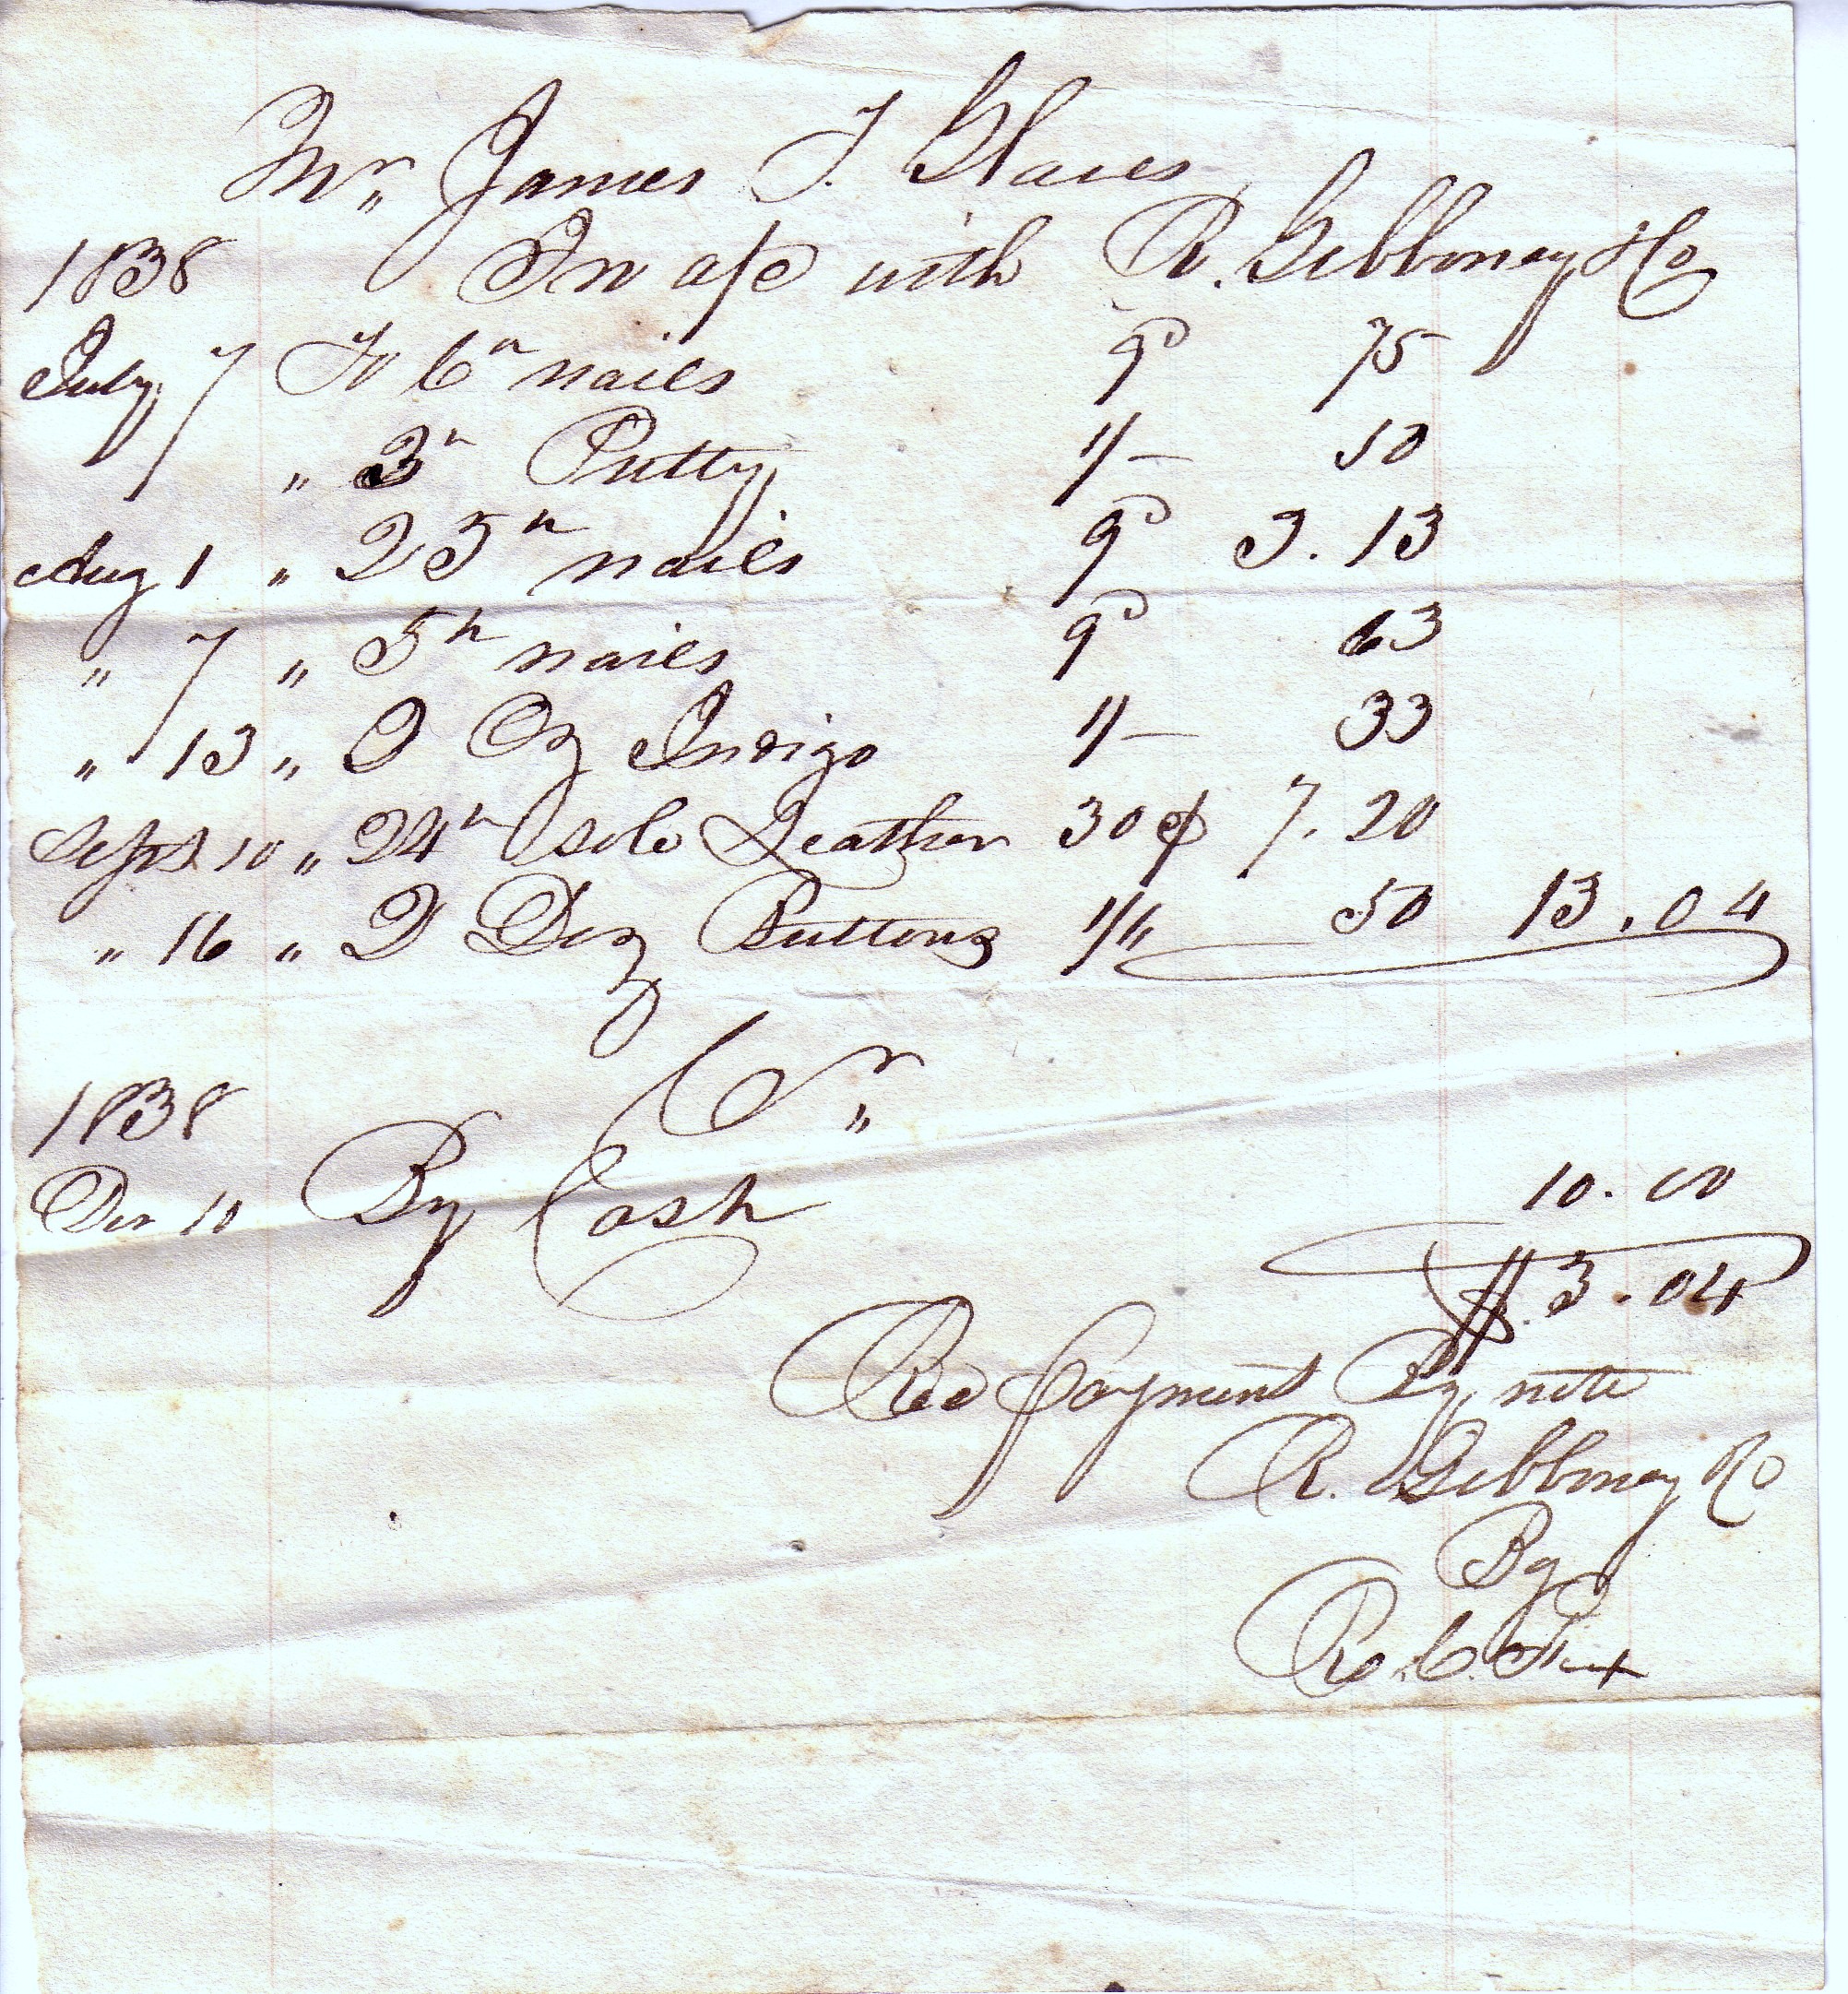 Mr. James T. Graves
1838 In a/c with R. Gibboney & Co
July 7 To 6 " nails 9d 75
" 3 " Putty 1/- 50
Aug 1 " 25 " nails 9d 3.13
" 7 " 5 " nails 9d 63
" 13 " 2 Oz Indigo 1/- 33
Sept 10 " 24 " Sole Leather 30 ¢ 7.20
" 16 " 2 Doz Buttons 1/6 50 13.04
Cr
1838
Dec 10 By Cash 10.00
$3.04
Recd Payment By note
R. Gibboney & Co
By
R. C.